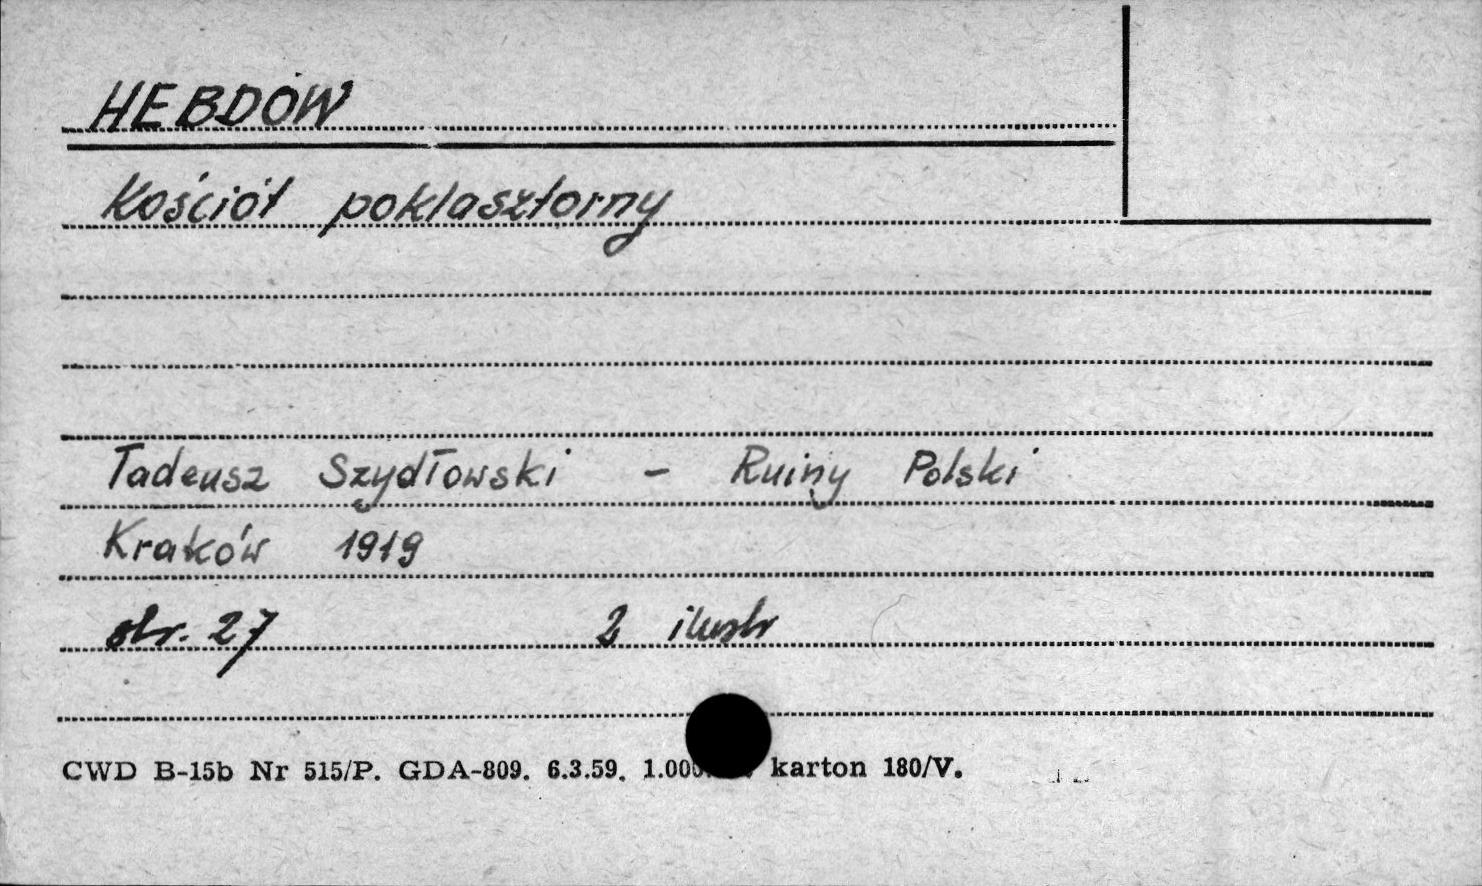 HEBDÓW
Kościół poklasztorny
Tadeusz Szydłowski - Ruiny Polski
Kraków 1919
str. 27 2 ilustr
CWD B-15b Nr 515/P. GDA-809. 6.3.59. karton 180/V.